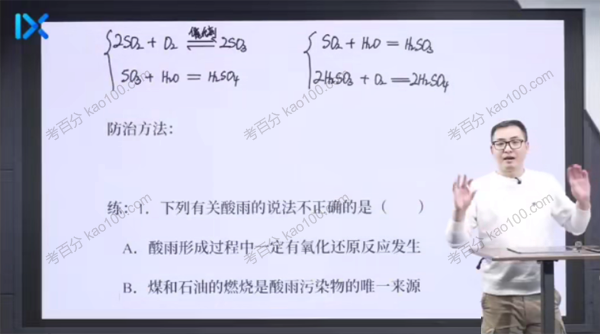 2SO₂ + O₂ 催化剂⇌ 2SO₃
SO₂ + H₂O = H₂SO₃
SO₃ + H₂O = H₂SO₄
2H₂SO₃ + O₂ = 2H₂SO₄
防治方法：
练：1. 下列有关酸雨的说法不正确的是（ ）
A．酸雨形成过程中一定有氧化还原反应发生
B．煤和石油的燃烧是酸雨污染物的唯一来源
考百分 kao100.com
考百分 kao100.com
考百分 kao100.com
考百分 kao100.com
考百分 kao100.com
考百分 kao100.com